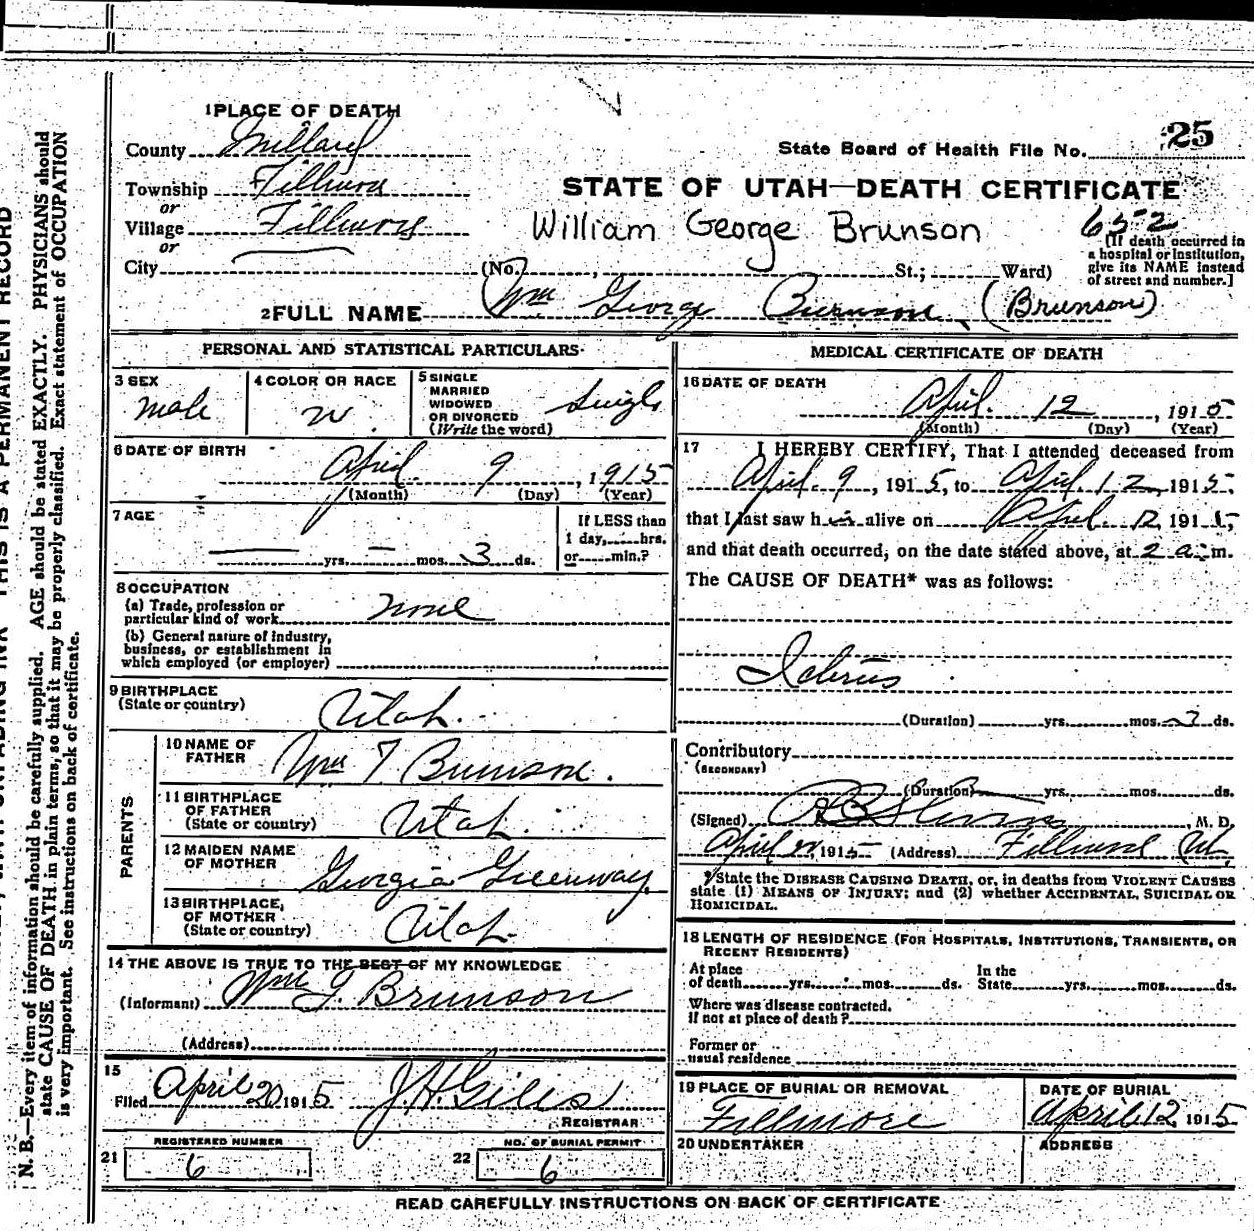 N. B.—Every item of information should be carefully supplied. AGE should be stated EXACTLY. PHYSICIANS should
state CAUSE OF DEATH in plain terms, so that it may be properly classified. Exact statement of OCCUPATION
is very important. See instructions on back of certificate.
THIS IS A PERMANENT RECORD
1 PLACE OF DEATH
County Millard
State Board of Health File No. 25
Township Fillmore
STATE OF UTAH—DEATH CERTIFICATE
or
Village Fillmore
William George Brunson 652
or
City (No. , St.; Ward)
[If death occurred in
a hospital or institution,
give its NAME instead
of street and number.]
2 FULL NAME Wm George Burnson (Brunson)
PERSONAL AND STATISTICAL PARTICULARS
3 SEX
male
4 COLOR OR RACE
W.
5 SINGLE
MARRIED
WIDOWED
OR DIVORCED
(Write the word)
Single
6 DATE OF BIRTH
April 9, 1915
(Month) (Day) (Year)
7 AGE
— yrs. — mos. 3 ds.
If LESS than
1 day, hrs.
or min.?
8 OCCUPATION
(a) Trade, profession or
particular kind of work none
(b) General nature of industry,
business, or establishment in
which employed (or employer)
9 BIRTHPLACE
(State or country)
Utah.
PARENTS
10 NAME OF
FATHER
Wm T Brunson.
11 BIRTHPLACE
OF FATHER
(State or country)
Utah.
12 MAIDEN NAME
OF MOTHER
Georgia Greenway
13 BIRTHPLACE
OF MOTHER
(State or country)
Utah.
14 THE ABOVE IS TRUE TO THE BEST OF MY KNOWLEDGE
(Informant) Wm G. Brunson
(Address)
15
Filed April 20 1915 J.H. Giles
REGISTRAR
REGISTERED NUMBER
21 6
NO. OF BURIAL PERMIT
22 6
MEDICAL CERTIFICATE OF DEATH
16 DATE OF DEATH
April. 12, 1915
(Month) (Day) (Year)
17 I HEREBY CERTIFY, That I attended deceased from
April. 9, 1915, to April. 12, 1915,
that I last saw him alive on April. 12, 1915,
and that death occurred, on the date stated above, at 2 a.m.
The CAUSE OF DEATH* was as follows:
Icterus
(Duration) yrs. mos. 3 ds.
Contributory
(SECONDARY)
(Duration) yrs. mos. ds.
(Signed) Stevens, M. D.
April 1915 (Address) Fillmore Ut.
*State the DISEASE CAUSING DEATH, or, in deaths from VIOLENT CAUSES
state (1) MEANS OF INJURY; and (2) whether ACCIDENTAL, SUICIDAL OR
HOMICIDAL.
18 LENGTH OF RESIDENCE (FOR HOSPITALS, INSTITUTIONS, TRANSIENTS, OR
RECENT RESIDENTS)
At place
of death yrs. mos. ds.
In the
State yrs. mos. ds.
Where was disease contracted.
if not at place of death?
Former or
usual residence
19 PLACE OF BURIAL OR REMOVAL
Fillmore
DATE OF BURIAL
April 12, 1915
20 UNDERTAKER
ADDRESS
READ CAREFULLY INSTRUCTIONS ON BACK OF CERTIFICATE